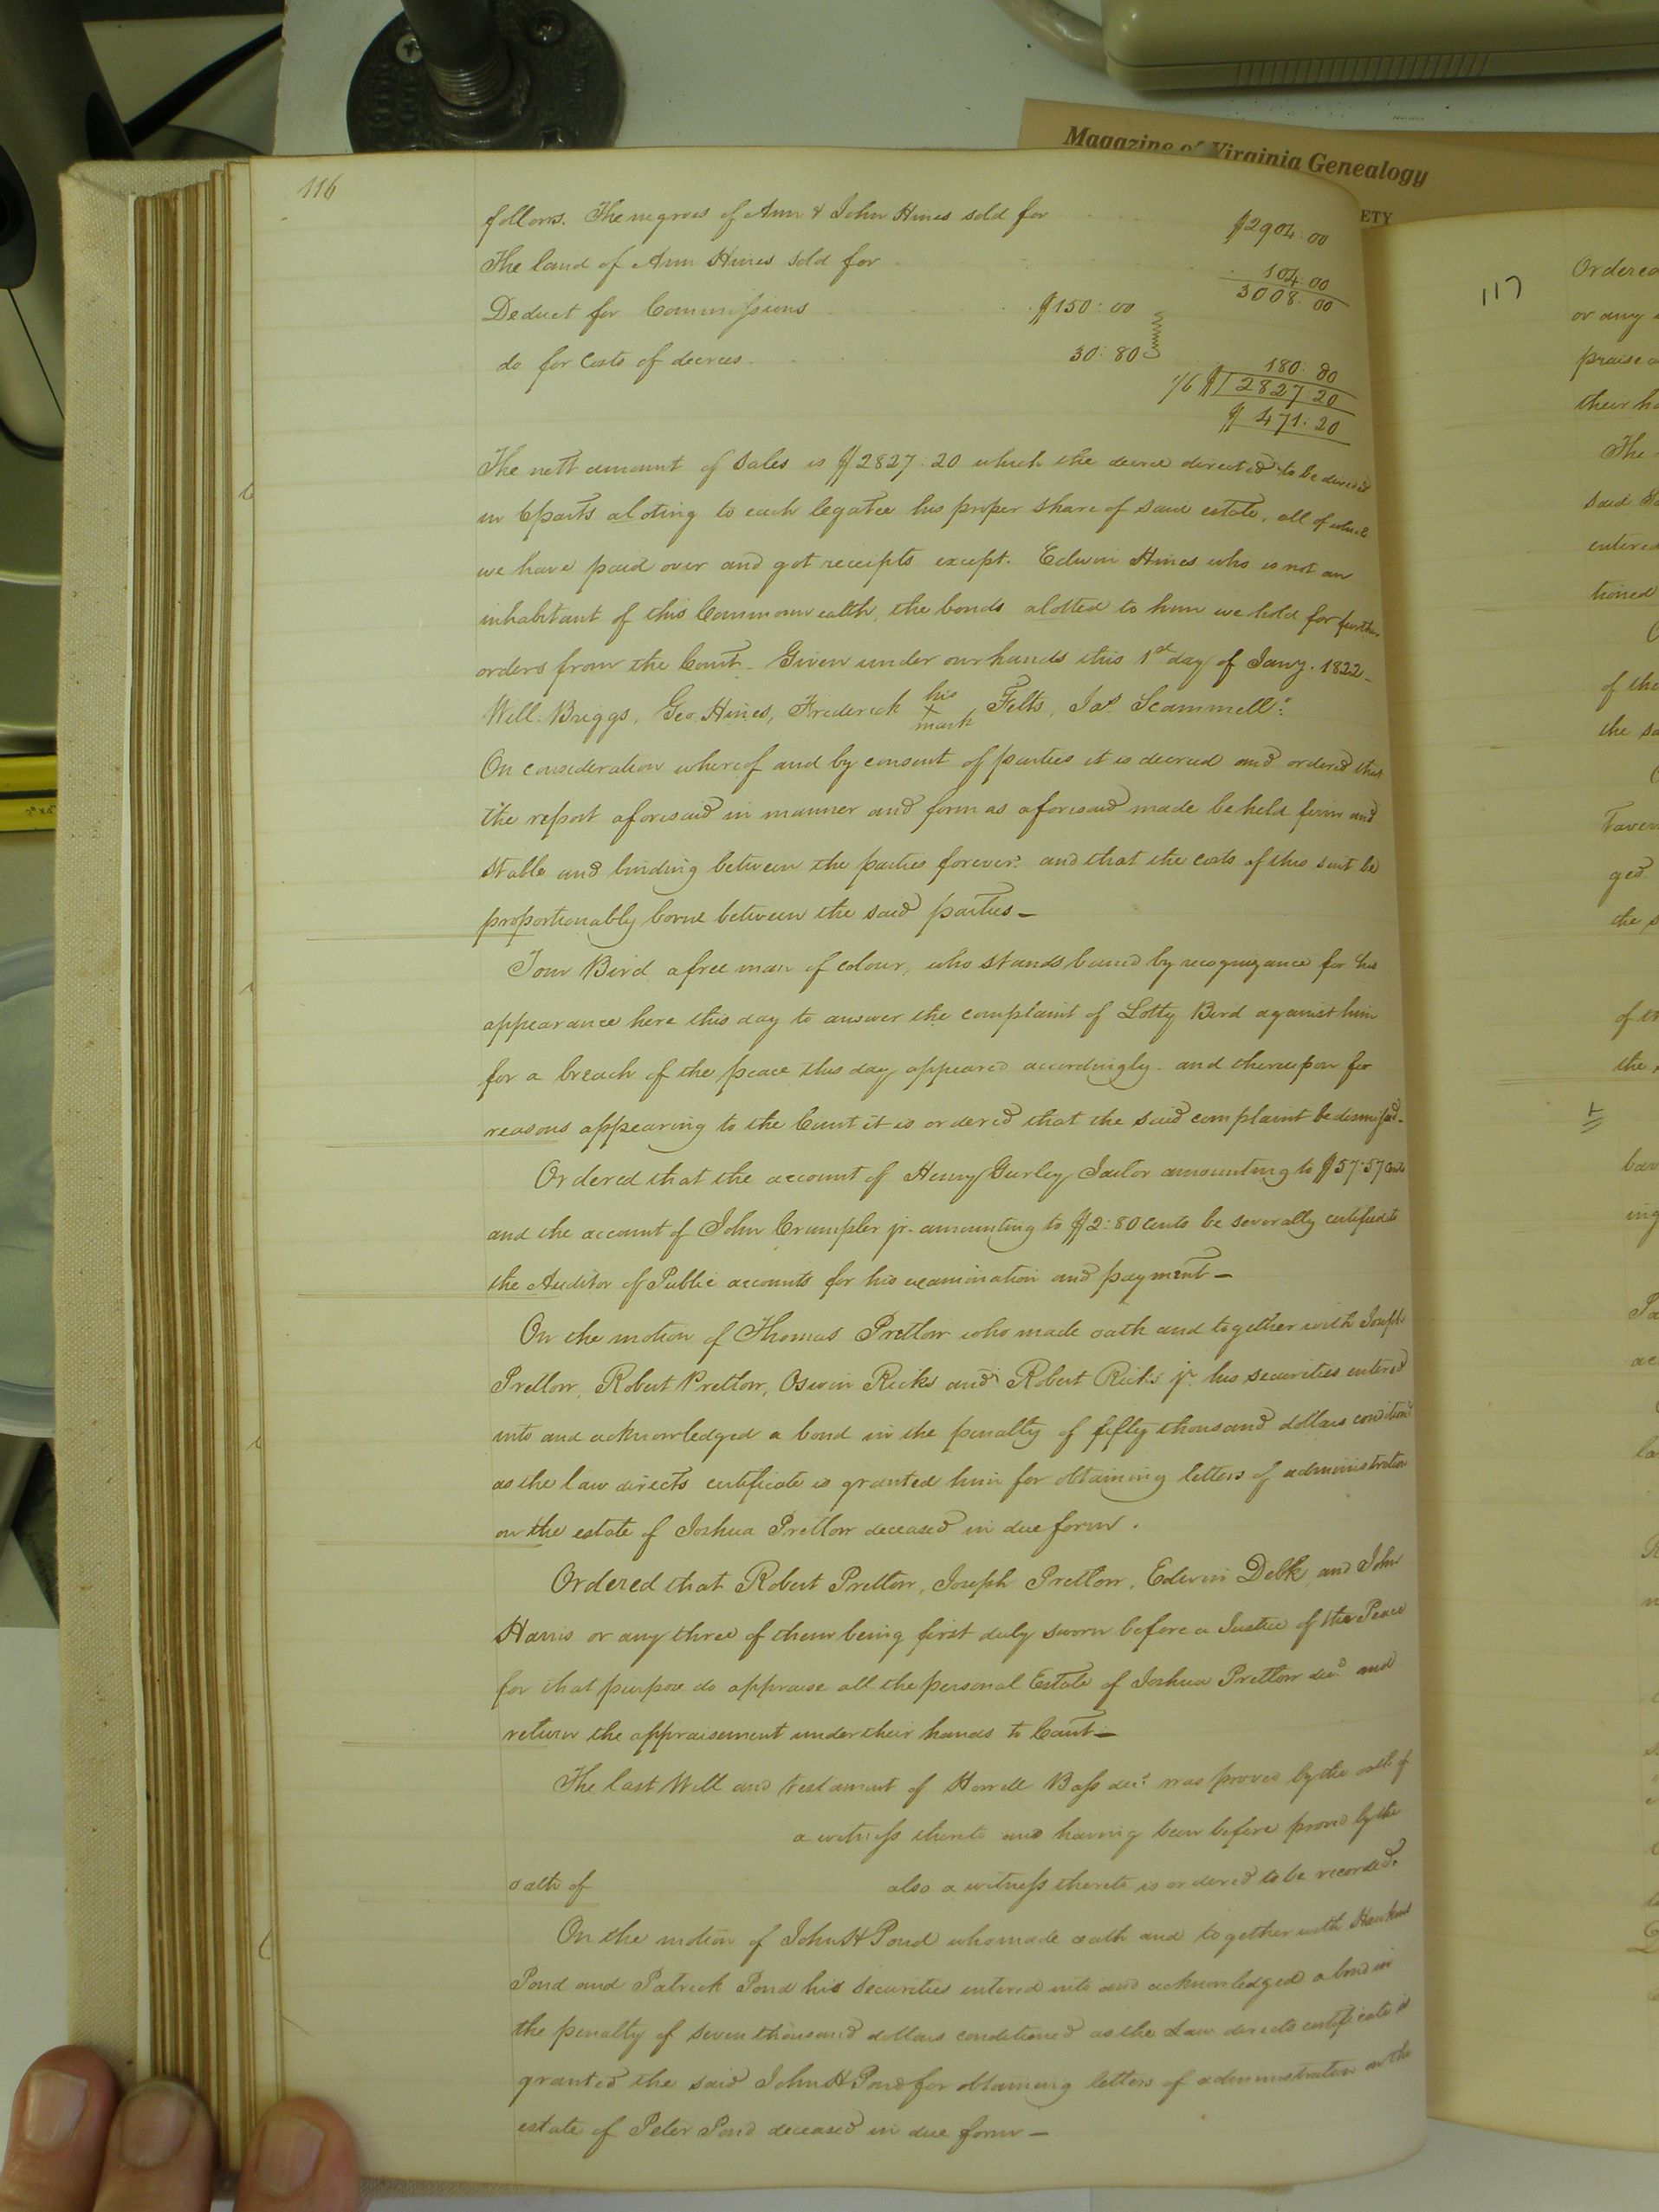 Magazine of Virginia Genealogy
ETY
116
follows. The negroes of Ann & John Hines sold for $2904:00
The land of Ann Hines sold for 104:00
3008:00
Deduct for Commissions $150:00
do for Costs of decrees 30:80
180:80
1/6 $ 2827:20
$ 471:20
The nett amount of Sales is $2827:20 which the decree directed to be divided
in 6 parts aloting to each legatee his proper share of said estate, all of which
we have paid over and got receipts except. Edwin Hines who is not an
inhabitant of this Commonwealth, the bonds alotted to him we hold for further
orders from the Court. Given under our hands this 1st day of Jany. 1822_
Will. Briggs, Geo. Hines, Frederick his + mark Felts, Jas Scammell.
On consideration whereof and by consent of parties it is decreed and ordered that
the report aforesaid in manner and form as aforesaid made be held firm and
stable and binding between the parties forever. and that the costs of this suit be
proportionably borne between the said parties_
Tom Bird a free man of colour, who stands bound by recognizance for his
appearance here this day to answer the complaint of Lotty Bird against him
for a breach of the peace this day appeared accordingly. and thereupon for
reasons appearing to the Court it is ordered that the said complaint be dismissed.
Ordered that the account of Henry Gurley Jailor amounting to $57:57 Cents
and the account of John Crumpler jr. amounting to $2:80 Cents be severally certified to
the Auditor of Public accounts for his examination and payment_
On the motion of Thomas Pretlow who made oath and together with Joseph
Pretlow, Robert Pretlow, Oswin Ricks and Robert Ricks jr. his securities entered
into and acknowledged a bond in the penalty of fifty thousand dollars condition'd
as the law directs certificate is granted him for obtaining letters of administration
on the estate of Joshua Pretlow deceased in due form.
Ordered that Robert Pretlow, Joseph Pretlow, Edwin Delk and John
Harris or any three of them being first duly sworn before a Justice of the Peace
for that purpose do appraise all the personal Estate of Joshua Pretlow decd. and
return the appraisement under their hands to Court_
The last Will and testament of Howell Bass decd. was proved by the oath of
a witness thereto and having been before proved by the
oath of also a witness thereto is ordered to be recorded.
On the motion of John H Pond who made oath and together with
Pond and Patrick Pond his securities entered into and acknowledged a bond in
the penalty of seven thousand dollars conditioned as the Law directs certificate is
granted the said John H Pond for obtaining letters of administration on the
estate of Peter Pond deceased in due form_
117
Ordered
or any
praise
their ha
The
said
entered
tioned
of the
the sa
Tavern
ged
the s
of th
the